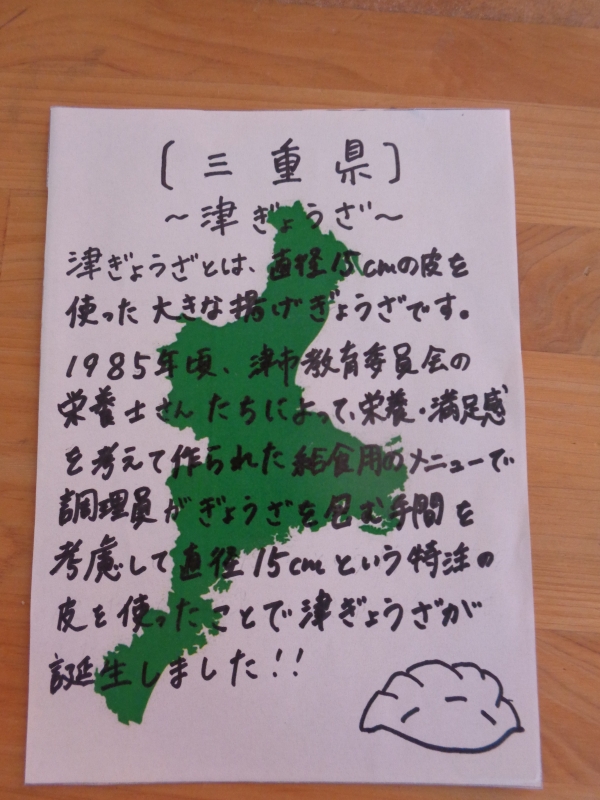 〔三重県〕
～津ぎょうざ～
津ぎょうざとは、直径15cmの皮を
使った大きな揚げぎょうざです。
1985年頃、津市教育委員会の
栄養士さんたちによって、栄養・満足感
を考えて作られた給食用のメニューで
調理員がぎょうざを包む手間を
考慮して直径15cmという特注の
皮を使ったことで津ぎょうざが
誕生しました!!